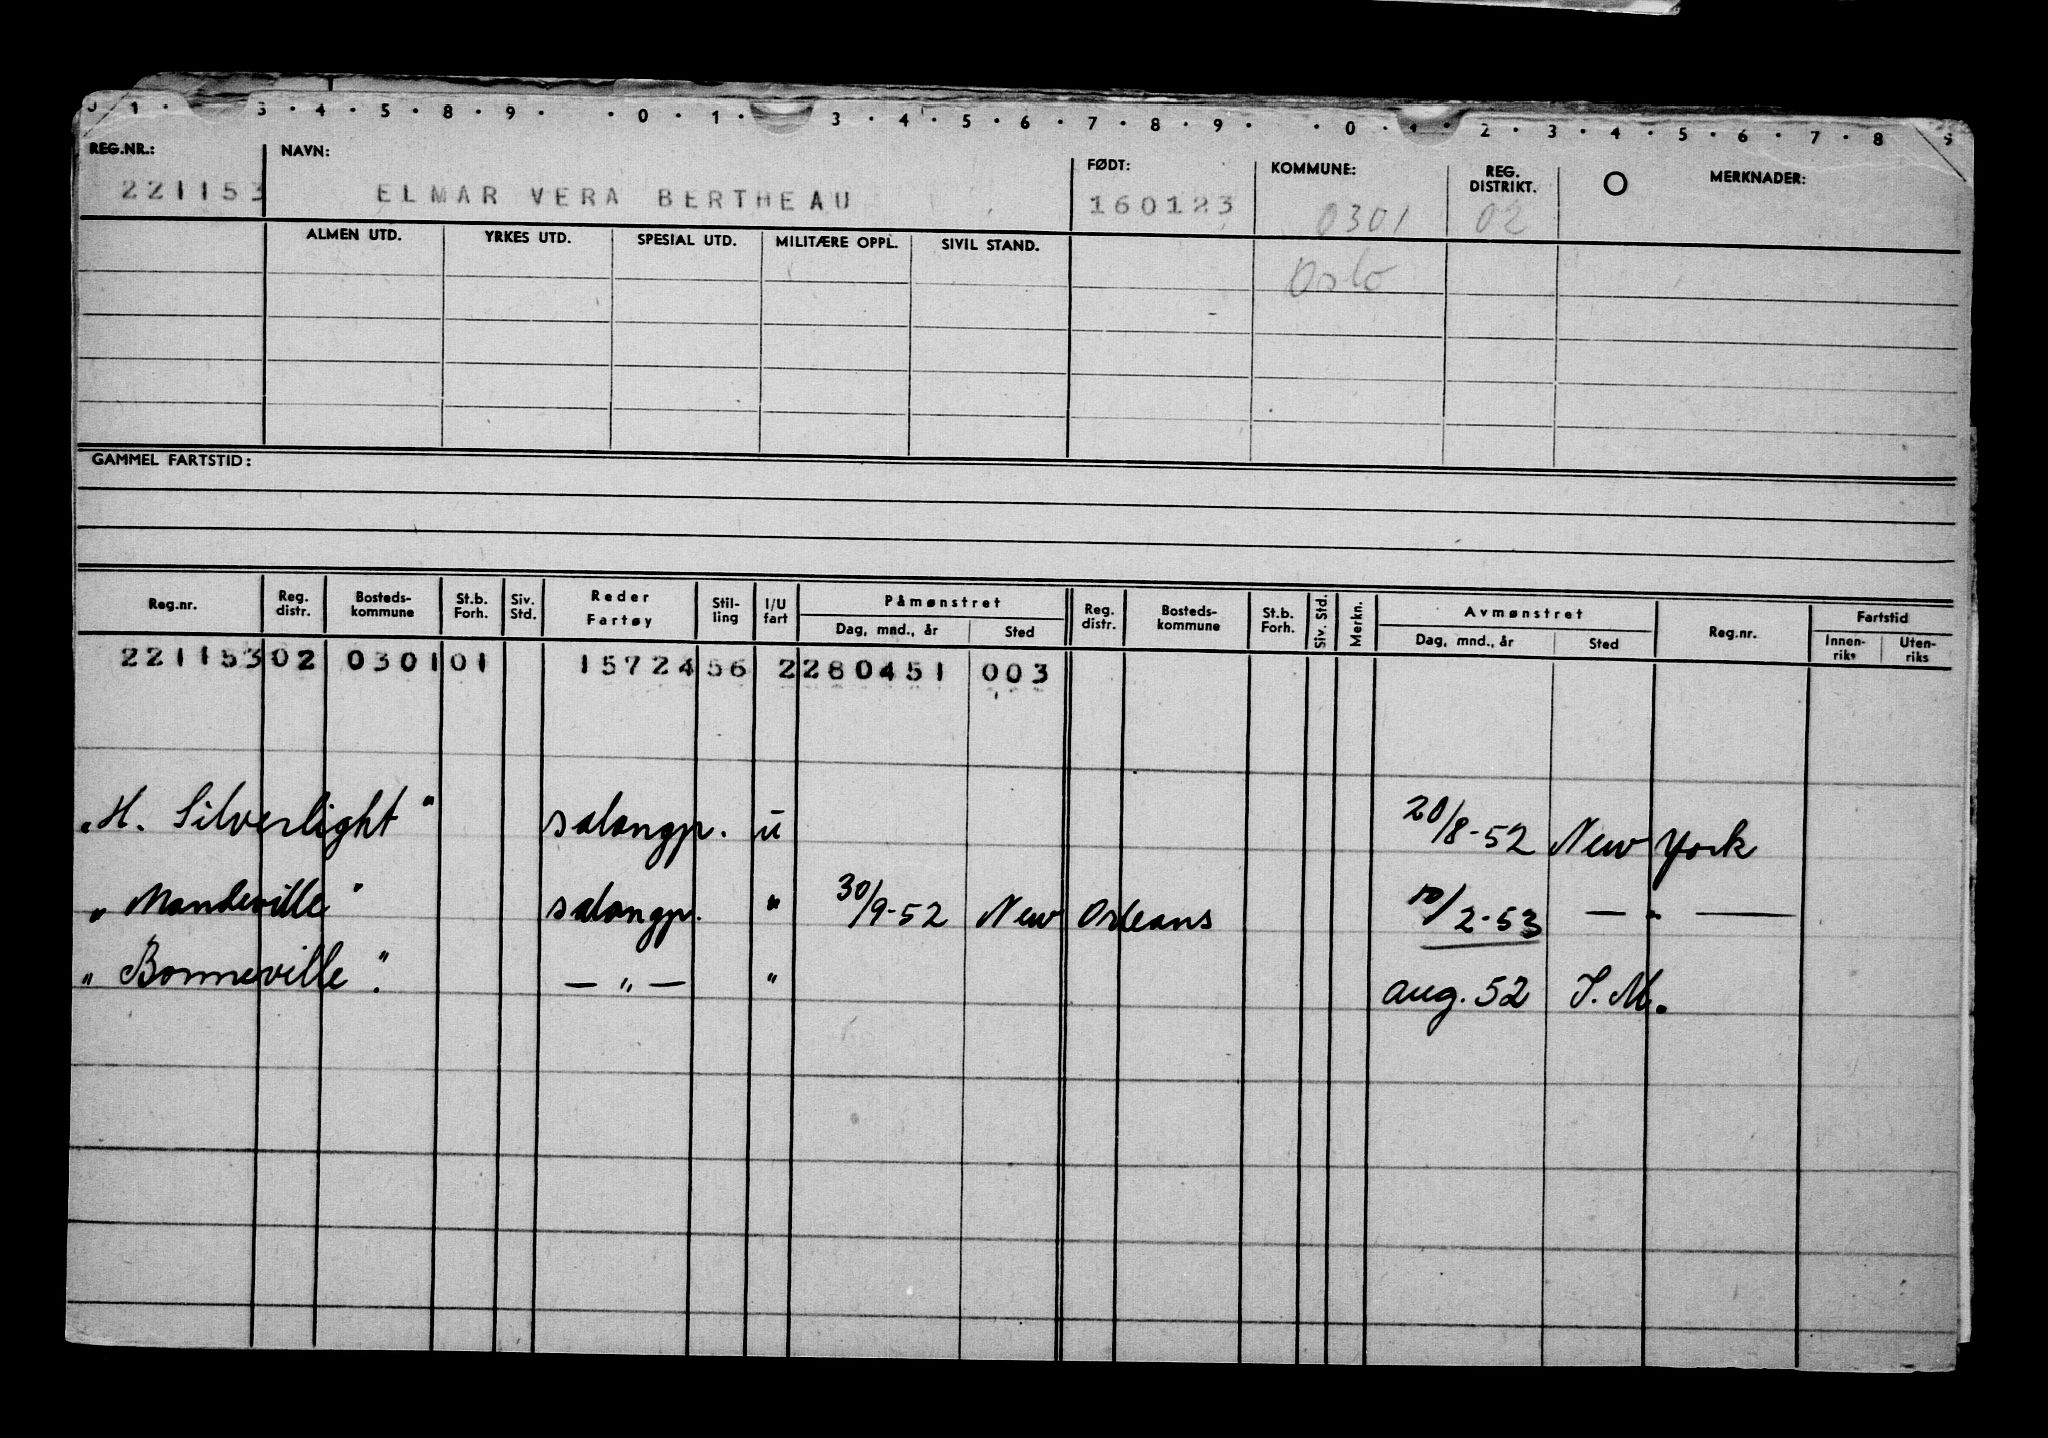 0 1 · 3 · 4 · 5 · 8 · 9 · · 0 · 1 · 3 · 4 · 5 · 6 · 7 · 8 · 9 · · 0 · 1 · 2 · 3 · 4 · 5 · 6 · 7 · 8 9
REG.NR.: NAVN: FØDT: KOMMUNE: REG. DISTRIKT. O MERKNADER:
221153 ELMAR VERA BERTHEAU 160123 0301 02
ALMEN UTD. YRKES UTD. SPESIAL UTD. MILITÆRE OPPL. SIVIL STAND.
Oslo
GAMMEL FARTSTID:
Reg.nr. Reg. distr. Bosteds- kommune St.b. Forh. Siv. Std. Reder Fartøy Stil- ling I/U fart Påmønstret Reg. distr. Bosteds- kommune St.b. Forh. Siv. Std. Merkn. Avmønstret Reg.nr. Fartstid
Dag, mnd., år Sted Dag, mnd., år Sted Innen- riks Uten- riks
221153 02 0301 01 15724 56 2 280451 003
"H. Silverlight" salongp. u 20/8-52 New York
"Mandeville" salongp. " 30/9-52 New Orleans 10/2-53 — " —
"Bonneville". — " — " aug. 52 S.M.